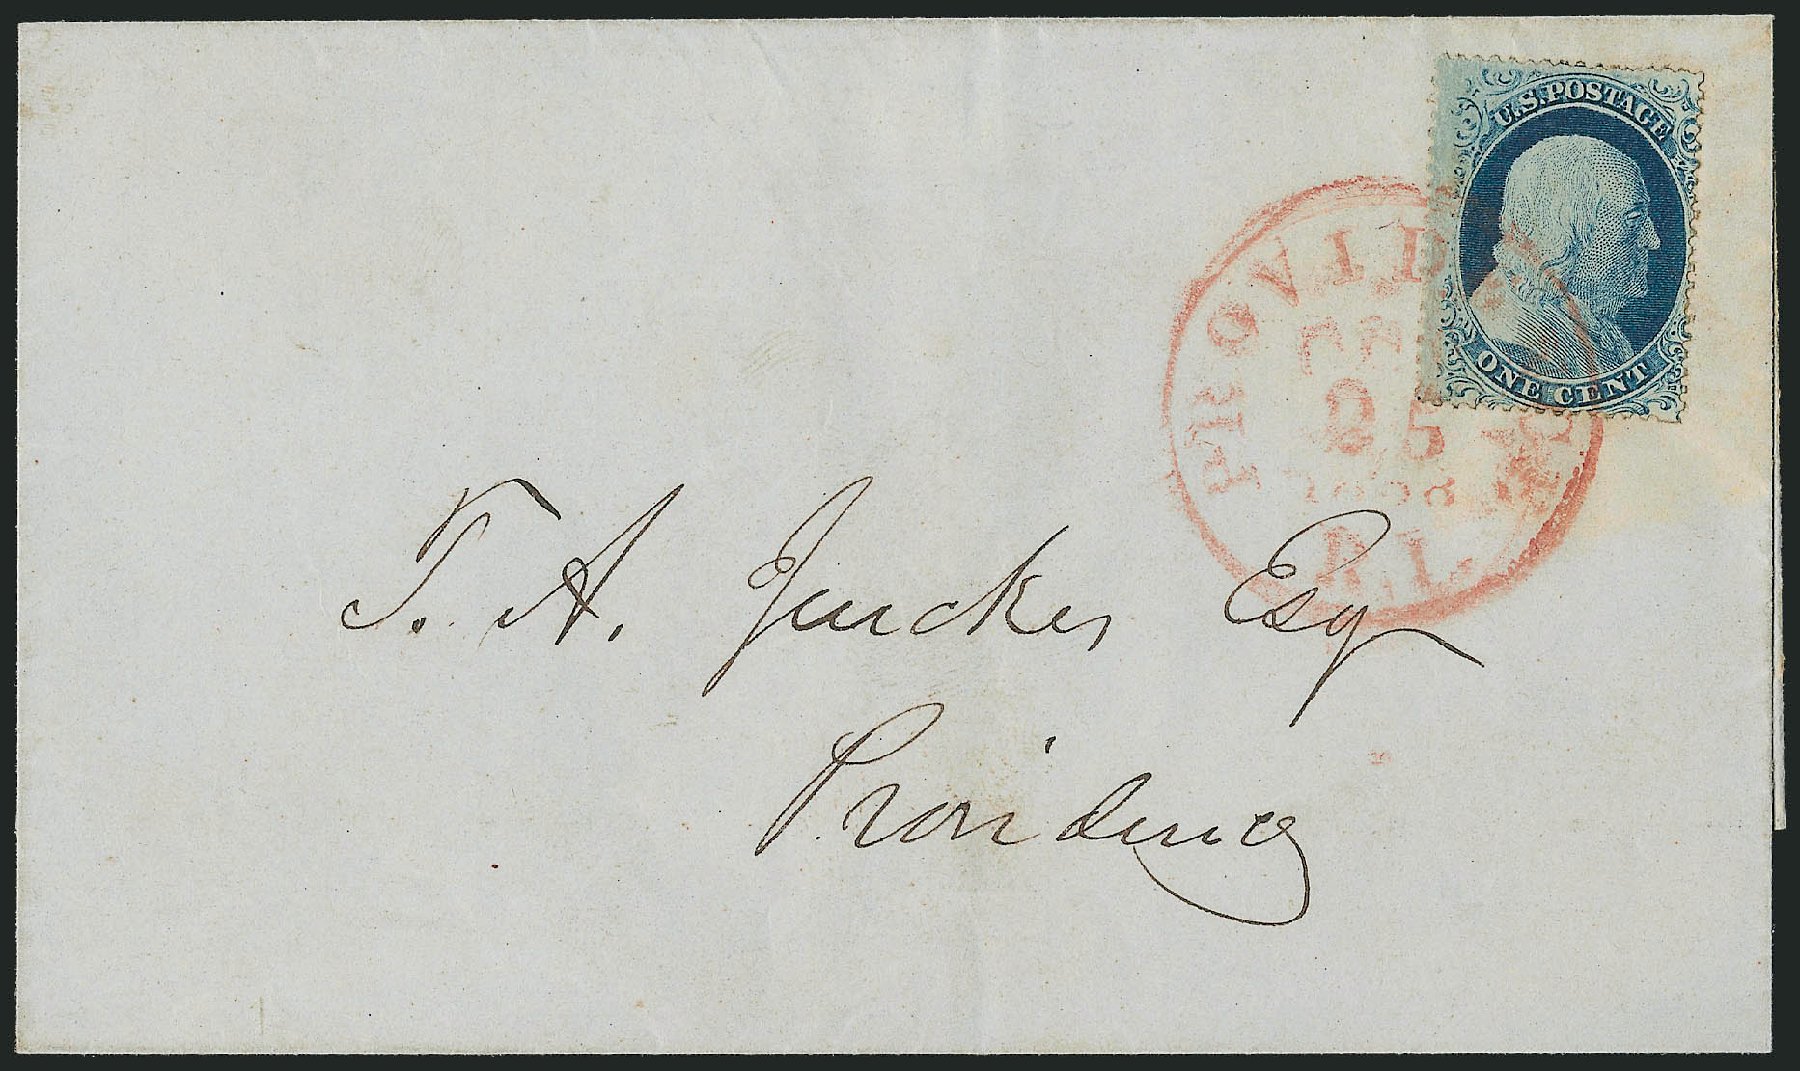 U.S. POSTAGE
ONE CENT
PROVIDENCE
25
1858
R.I.
T. A. Jenckes Esq
Providence